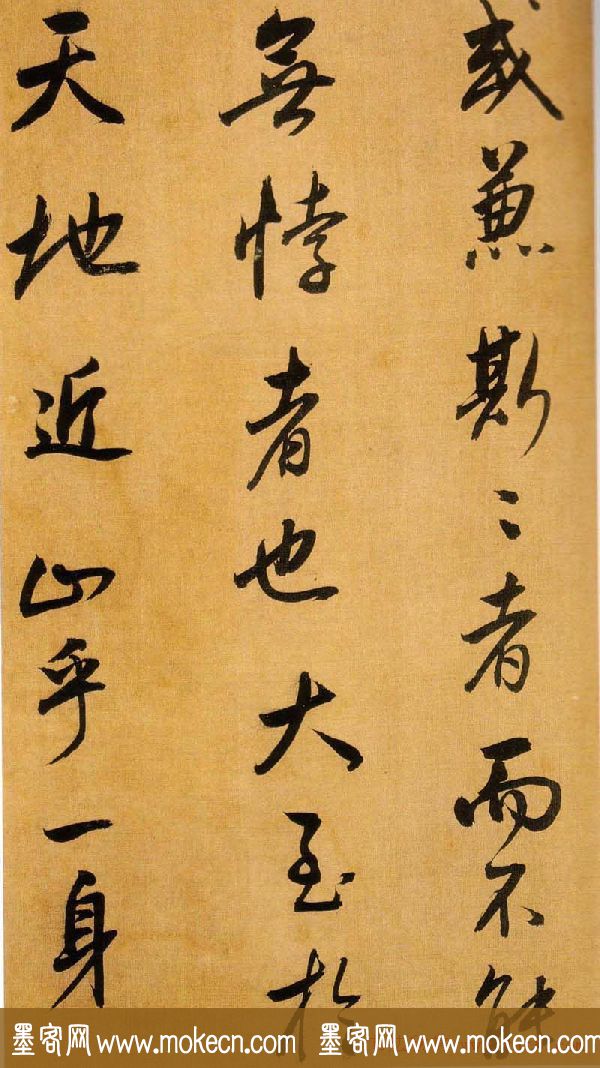 或兼斯二者而不能
無悖者也大至於
天地近止乎一身
墨客网 www.mokecn.com 墨客网 www.mokecn.com